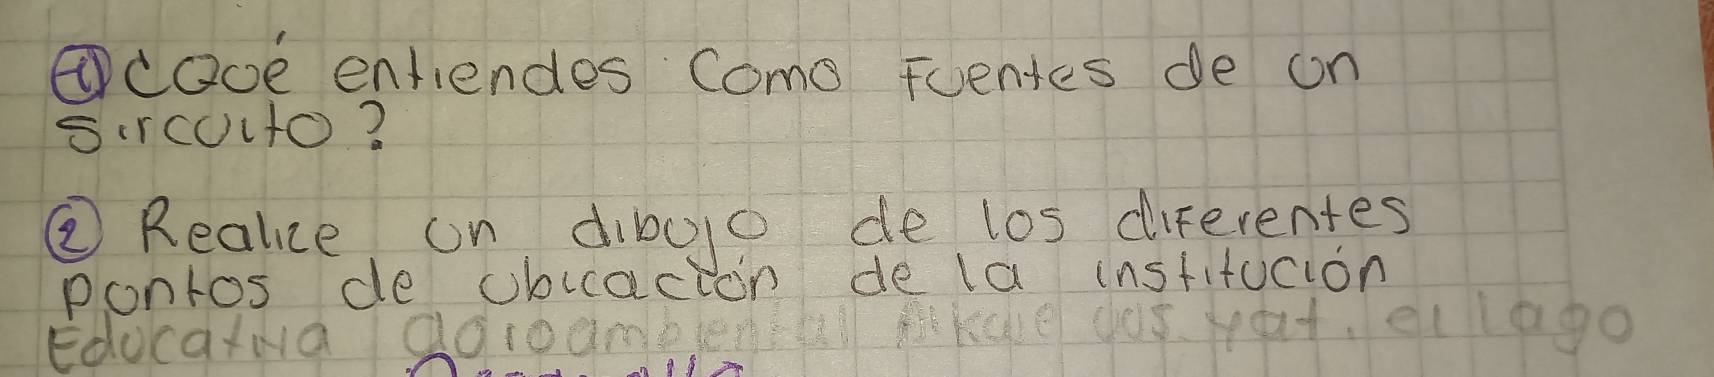 ① ¿Qué entiendes como Fuentes de un
sircuito?
② Realice un dibujo de los diferentes
puntos de ubicación de la institución
Educativa agroambiental el lago